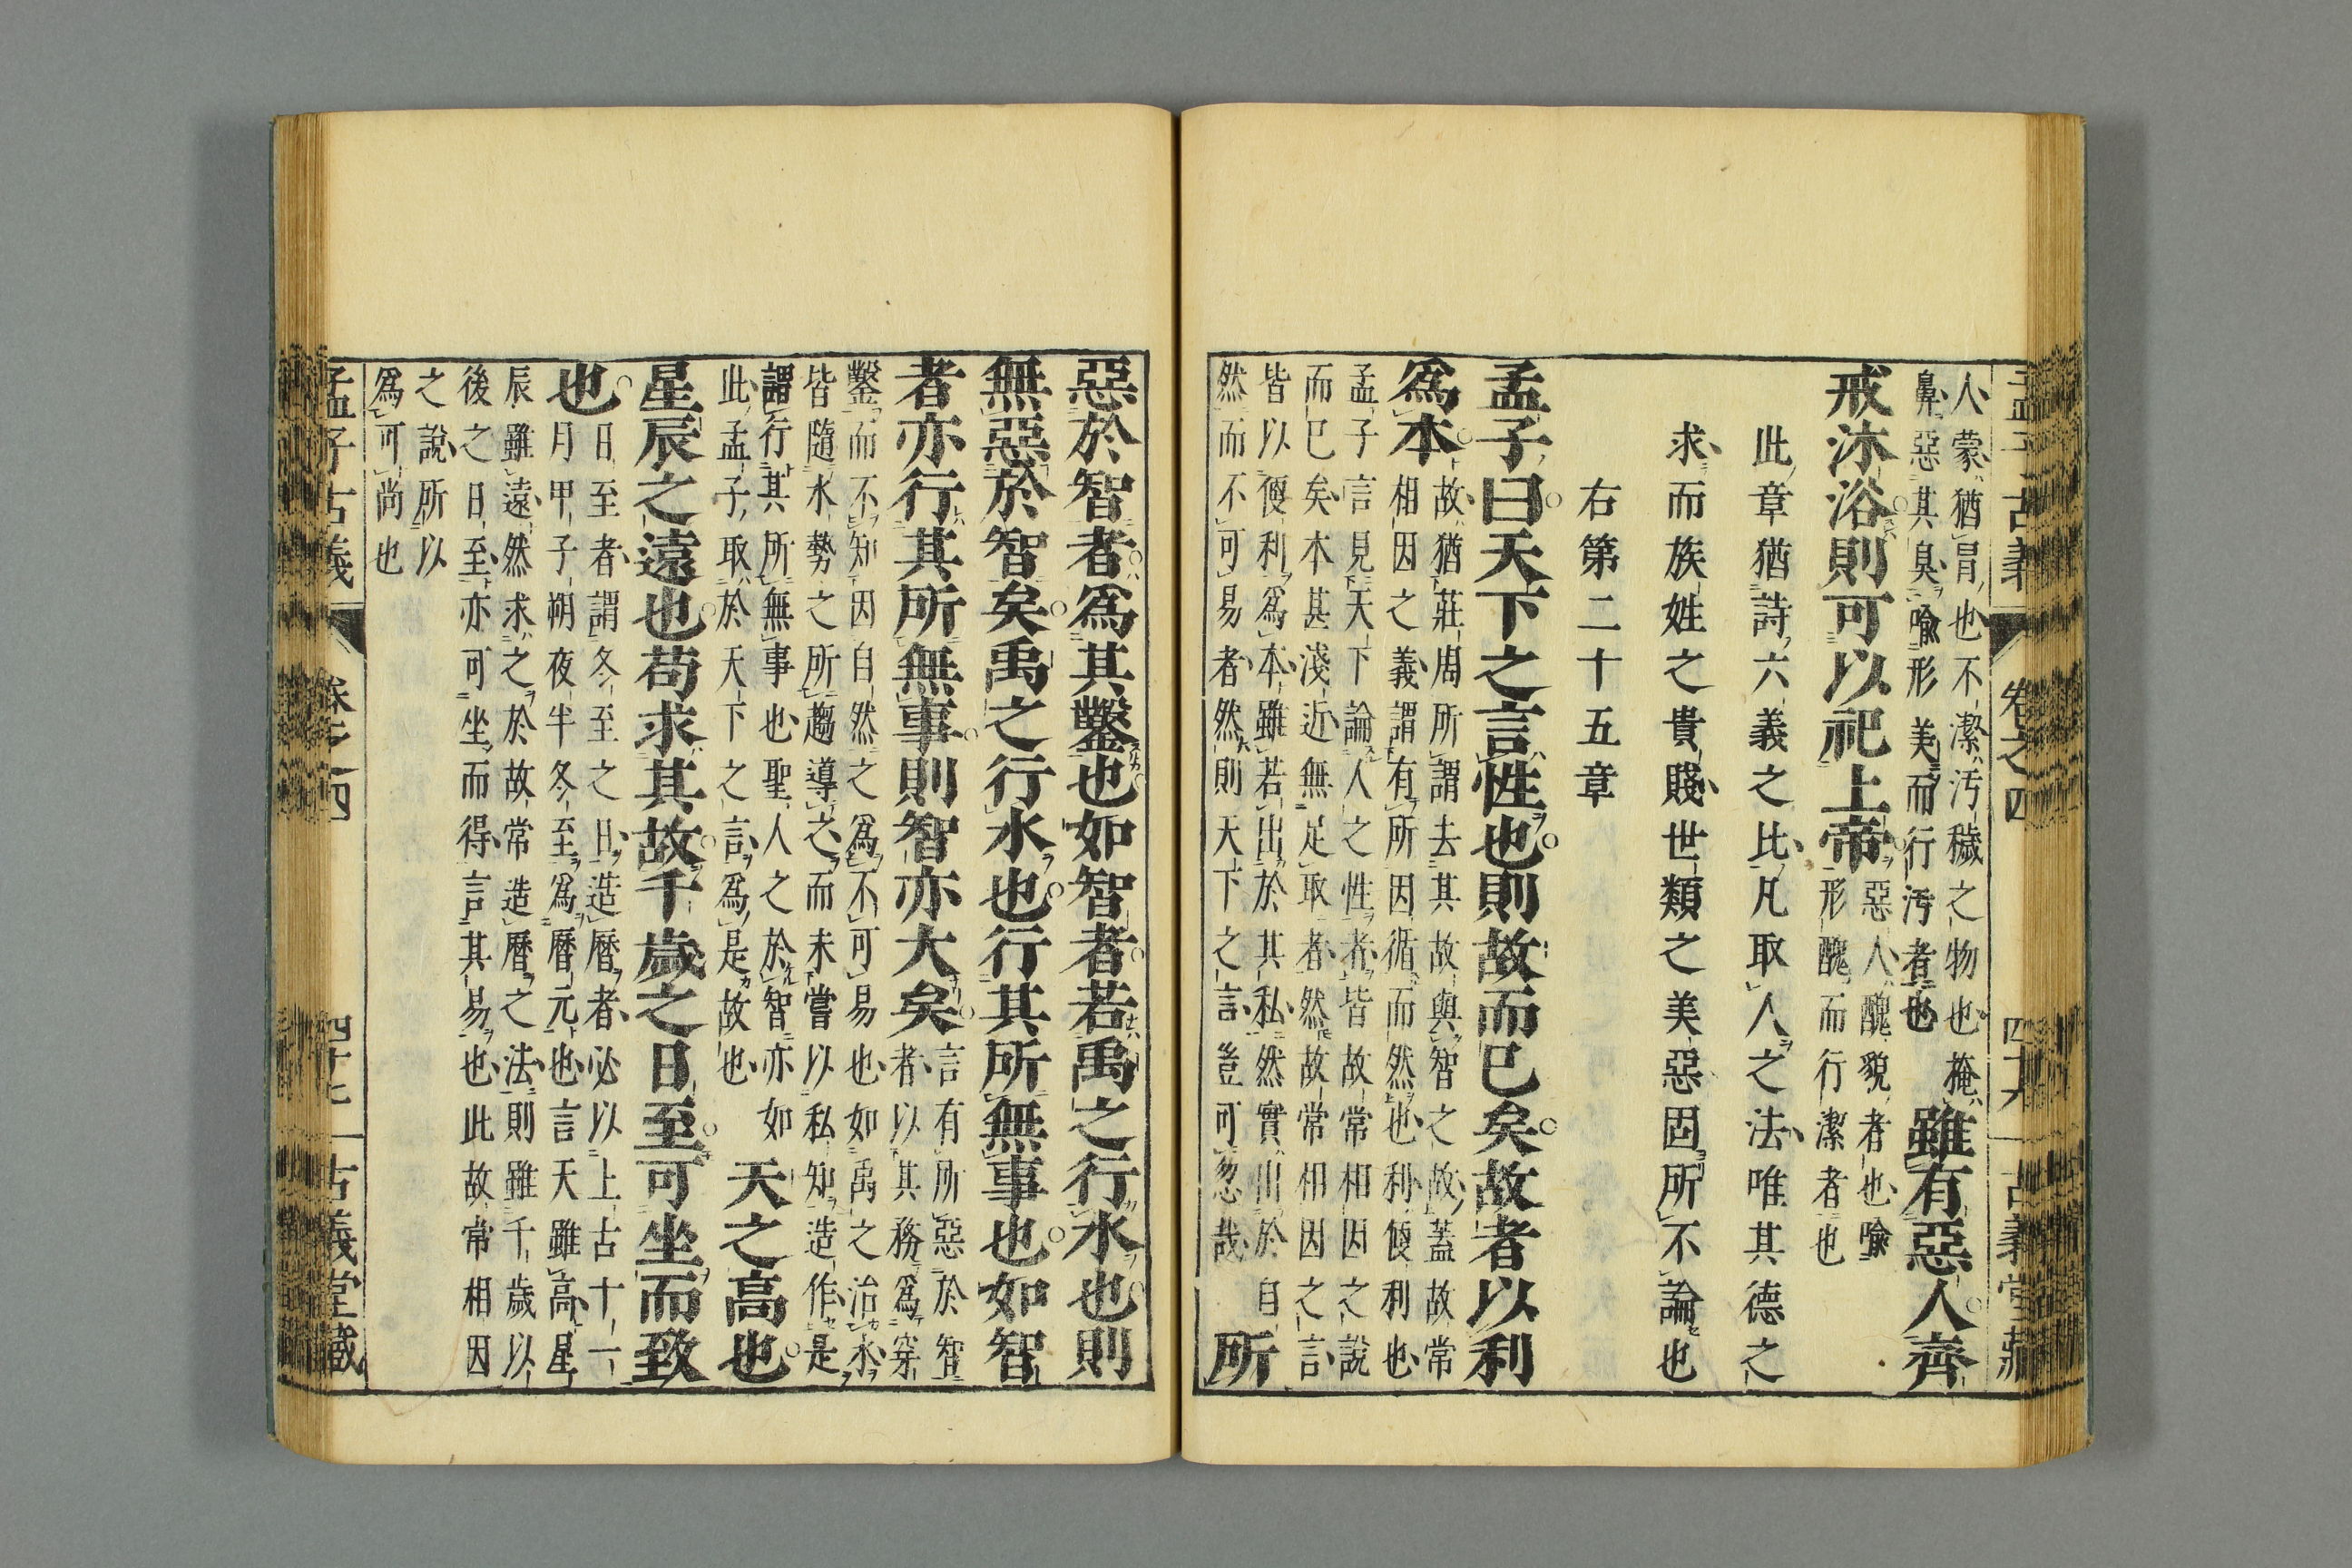 孟子古義 卷之四 四十六 古義堂藏
人蒙猶冒也不潔汚穢之物也掩
鼻惡其臭喻形美而行汚者也
雖有惡人齊
戒沐浴則可以祀上帝
惡人醜貌者也喻
形醜而行潔者也
此章猶詩六義之比凡取人之法唯其德之
求而族姓之貴賤世類之美惡固所不論也
右第二十五章
孟子曰天下之言性也則故而已矣故者以利
爲本
故猶莊周所謂去其故與智之故蓋故常
相因之義謂有所因循而然也利便利也
孟子言見天下論人之性者皆故常相因之說
而已矣本甚淺近無足取者然故常相因之言
皆以便利爲本雖若出於其私然實出於自
然而不可易者然則天下之言豈可忽哉
所
惡於智者爲其鑿也如智者若禹之行水也則
無惡於智矣禹之行水也行其所無事也如智
者亦行其所無事則智亦大矣
言有所惡於智
者以其務爲穿
鑿而不知因自然之爲不可易也如禹之治水
皆隨水勢之所趨導之而未嘗以私知造作是
謂行其所無事也聖人之於智亦如
此孟子取於天下之言爲是故也
天之高也
星辰之遠也苟求其故千歲之日至可坐而致
也
日至者謂冬至之日造曆者必以上古十一
月甲子朔夜半冬至爲曆元也言天雖高星
辰雖遠然求之於故常造曆之法則雖千歲以
後之日至亦可坐而得言其易也此故常相因
之說所以
爲可尚也
孟子古義 卷之四 四十七 古義堂藏